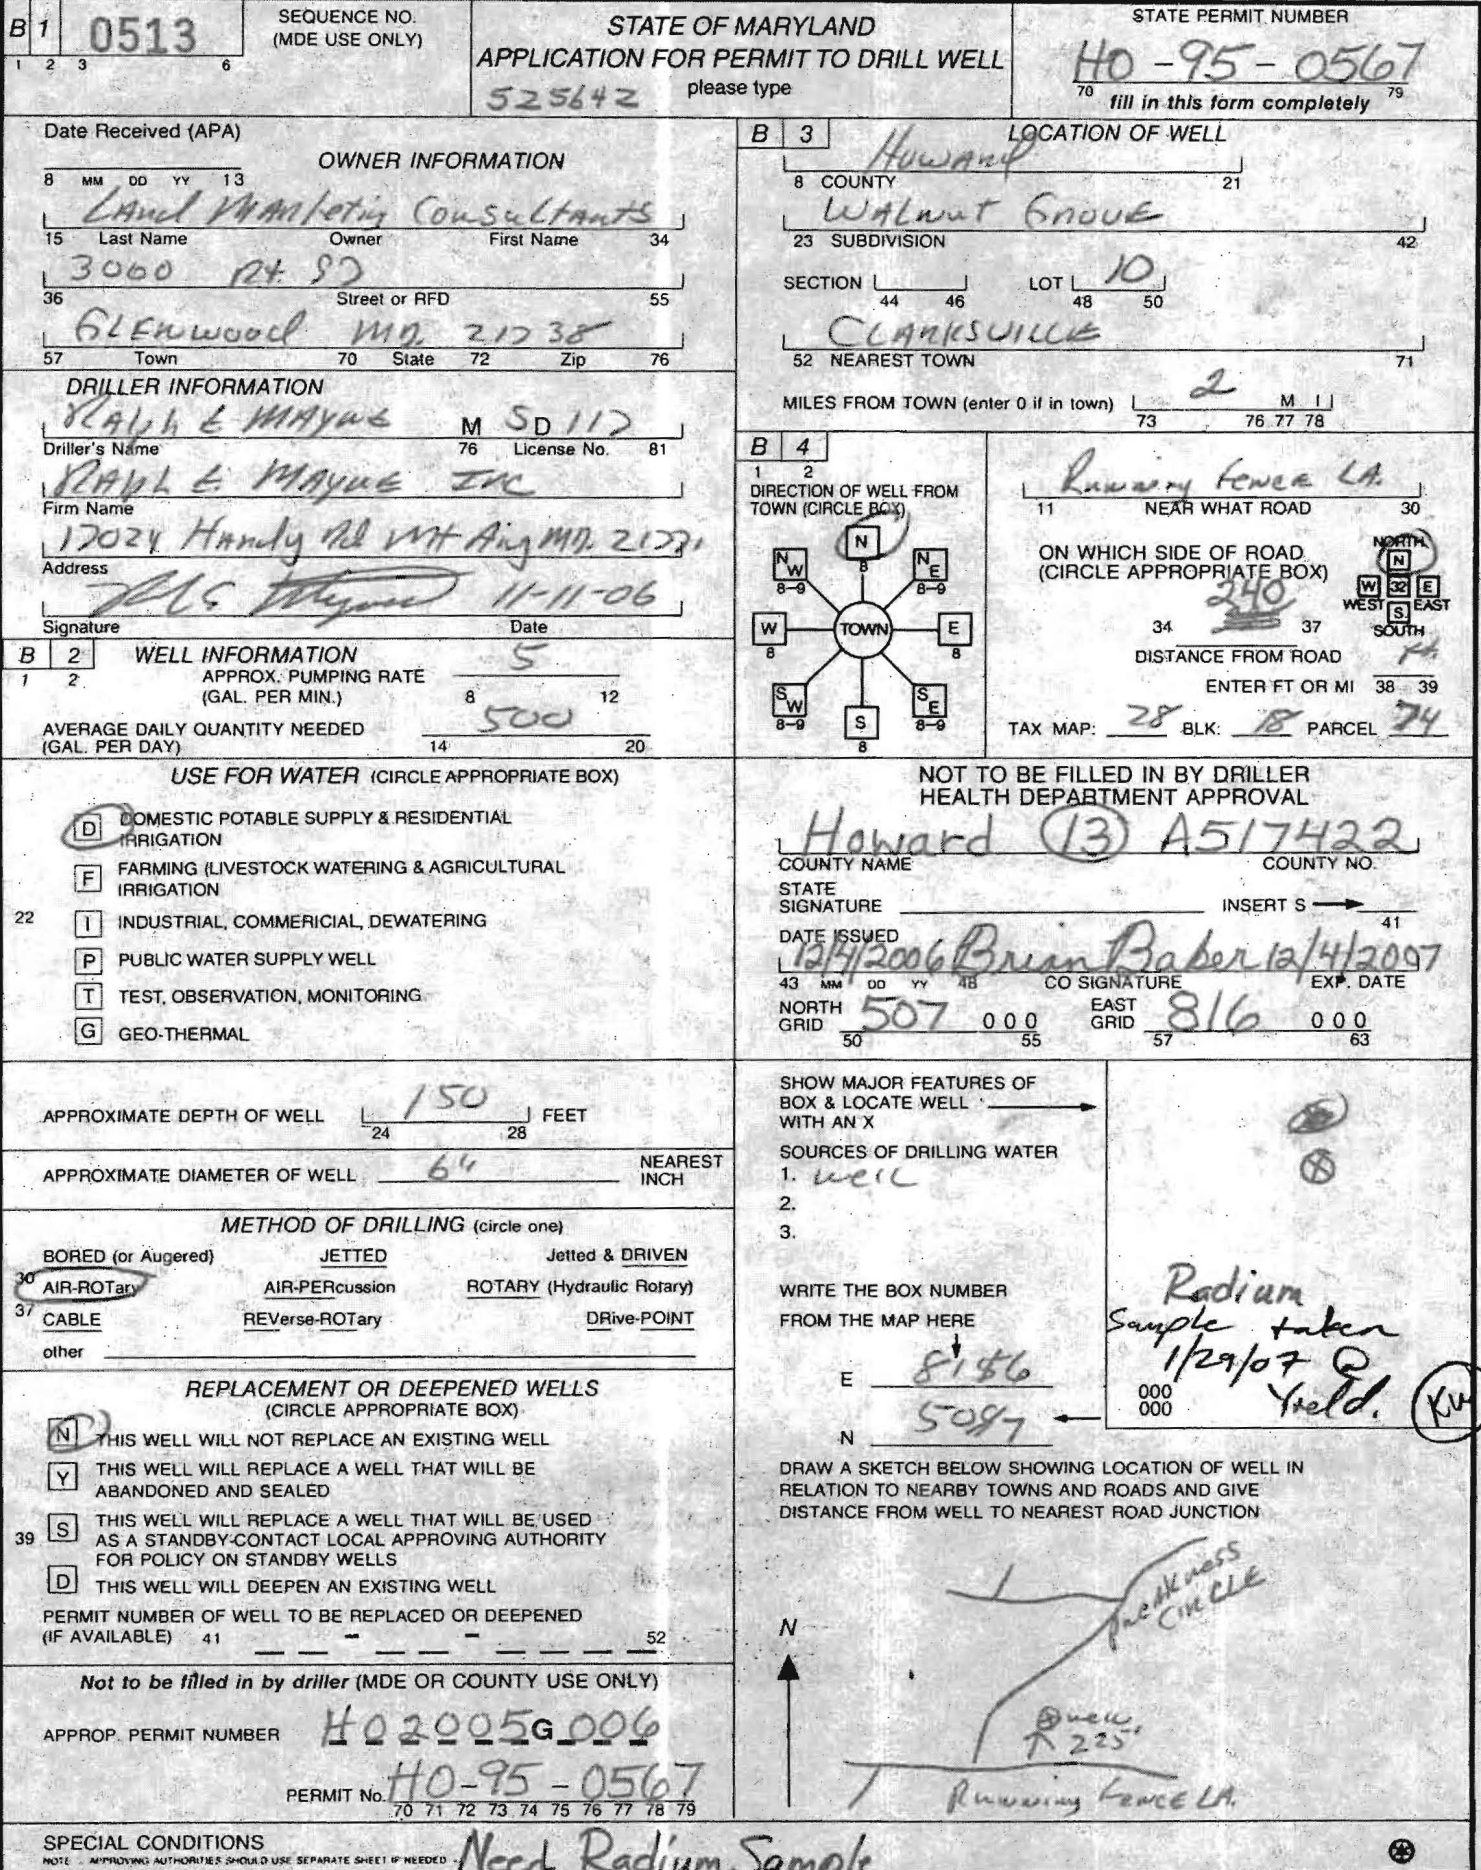 B 1 0513 SEQUENCE NO. (MDE USE ONLY)
1 2 3 6
STATE OF MARYLAND
APPLICATION FOR PERMIT TO DRILL WELL
525642 please type
STATE PERMIT NUMBER
HO-95-0567
70 79
fill in this form completely
Date Received (APA)
8 MM DD YY 13
OWNER INFORMATION
Land Marketing Consultants
15 Last Name Owner First Name 34
3060 Rt. 97
36 Street or RFD 55
GLENwood MD. 21738
57 Town 70 State 72 Zip 76
DRILLER INFORMATION
RALph E MAYNE M SD 117
Driller's Name 76 License No. 81
RALph E. MAYNE INC
Firm Name
17024 Handy Rd Mt Airy MD. 21771
Address
11-11-06
Signature Date
B 2 WELL INFORMATION
1 2
APPROX. PUMPING RATE
(GAL. PER MIN.) 5
8 12
AVERAGE DAILY QUANTITY NEEDED
(GAL. PER DAY) 500
14 20
USE FOR WATER (CIRCLE APPROPRIATE BOX)
D DOMESTIC POTABLE SUPPLY & RESIDENTIAL
IRRIGATION
F FARMING (LIVESTOCK WATERING & AGRICULTURAL
IRRIGATION
22 I INDUSTRIAL, COMMERICIAL, DEWATERING
P PUBLIC WATER SUPPLY WELL
T TEST, OBSERVATION, MONITORING
G GEO-THERMAL
APPROXIMATE DEPTH OF WELL 150 FEET
24 28
APPROXIMATE DIAMETER OF WELL 6" NEAREST INCH
METHOD OF DRILLING (circle one)
BORED (or Augered) JETTED Jetted & DRIVEN
30 AIR-ROTary AIR-PERcussion ROTARY (Hydraulic Rotary)
37 CABLE REVerse-ROTary DRive-POINT
other
REPLACEMENT OR DEEPENED WELLS
(CIRCLE APPROPRIATE BOX)
N THIS WELL WILL NOT REPLACE AN EXISTING WELL
Y THIS WELL WILL REPLACE A WELL THAT WILL BE
ABANDONED AND SEALED
39 S THIS WELL WILL REPLACE A WELL THAT WILL BE USED
AS A STANDBY-CONTACT LOCAL APPROVING AUTHORITY
FOR POLICY ON STANDBY WELLS
D THIS WELL WILL DEEPEN AN EXISTING WELL
PERMIT NUMBER OF WELL TO BE REPLACED OR DEEPENED
(IF AVAILABLE) 41 - - 52
Not to be filled in by driller (MDE OR COUNTY USE ONLY)
APPROP. PERMIT NUMBER HO2005G006
PERMIT No. HO-95-0567
70 71 72 73 74 75 76 77 78 79
SPECIAL CONDITIONS
NOTE - APPROVING AUTHORITIES SHOULD USE SEPARATE SHEET IF NEEDED - Need Radium Sample
B 3 LOCATION OF WELL
Howard
8 COUNTY 21
WALNUT GROVE
23 SUBDIVISION 42
SECTION LOT 10
44 46 48 50
CLARKSVILLE
52 NEAREST TOWN 71
MILES FROM TOWN (enter 0 if in town) 2 M I
73 76 77 78
B 4
1 2
DIRECTION OF WELL FROM
TOWN (CIRCLE BOX)
N 8
NW 8-9 NE 8-9
W 8 TOWN E 8
SW 8-9 SE 8-9
S 8
Running Fence LA.
11 NEAR WHAT ROAD 30
ON WHICH SIDE OF ROAD
(CIRCLE APPROPRIATE BOX)
NORTH N
WEST W 32 E EAST
S SOUTH
240
34 37
DISTANCE FROM ROAD
ENTER FT OR MI ft.
38 39
TAX MAP: 28 BLK: 18 PARCEL 74
NOT TO BE FILLED IN BY DRILLER
HEALTH DEPARTMENT APPROVAL
Howard 13 A517422
COUNTY NAME COUNTY NO.
STATE
SIGNATURE INSERT S
41
DATE ISSUED
12/4/2006 Brian Baber 12/4/2007
43 MM DD YY 48 CO SIGNATURE EXP. DATE
NORTH GRID 507 000 EAST GRID 816 000
50 55 57 63
SHOW MAJOR FEATURES OF
BOX & LOCATE WELL
WITH AN X
SOURCES OF DRILLING WATER
1. well
2.
3.
WRITE THE BOX NUMBER
FROM THE MAP HERE
E
N
000
000
Radium
Sample taken
1/29/07 @
Yield. KW
DRAW A SKETCH BELOW SHOWING LOCATION OF WELL IN
RELATION TO NEARBY TOWNS AND ROADS AND GIVE
DISTANCE FROM WELL TO NEAREST ROAD JUNCTION
N
Preakness
CIRCLE
well
225'
Running Fence LA.